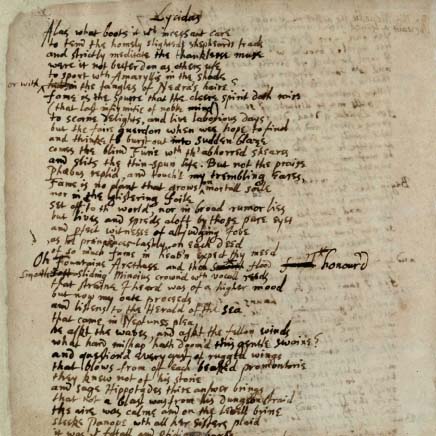 Lycidas
Alas what boots it wth incessant care
to tend the homely slighted shepheards trade
and strictly meditate the thanklesse muse
were it not better don as others use
to sport wth Amaryllis in the shade
or with the tangles of Neæra's haire
Fame is the spurre that the cleere spirit doth raise
(that last infirmitie of noble mind)
to scorne delights, and live laborious days
but the faire guerdon when wee hope to find
and thinke to burst out into sudden blaze
comes the blind Furie wth th' abhorred sheares
and slits the thin-spun life. But not the praise
Phœbus repli'd, and touch't my trembling eares,
Fame is no plant that grows mortall soile
nor in the glistering foile
set off to th' world, nor in broad rumor lies
but lives and spreds aloft by those pure eyes
and pfect witnesse of all judging Jove
as he pronounces lastly on each deed
of so much fame in heav'n expect thy meed
Oh Fountaine Arethuse and thou flood honour'd
sliding Mincius crown'd wth vocall reeds
that straine I heard was of a higher mood
but now my oate proceeds
and listens to the Herald of the sea
that came in Neptunes plea
he ask't the waves, and ask't the fellon winds
what hard mishap hath doom'd this gentle swaine?
and question'd every gust of rugged wings
that blows from off each beaked promontorie
they knew not of his storie
and sage Hippotades thire answer brings
that not a blast was from his dungeon strai'd
the aire was calme and on the levell brine
sleeke Panope wth all her sisters plaid
it was that fatall and